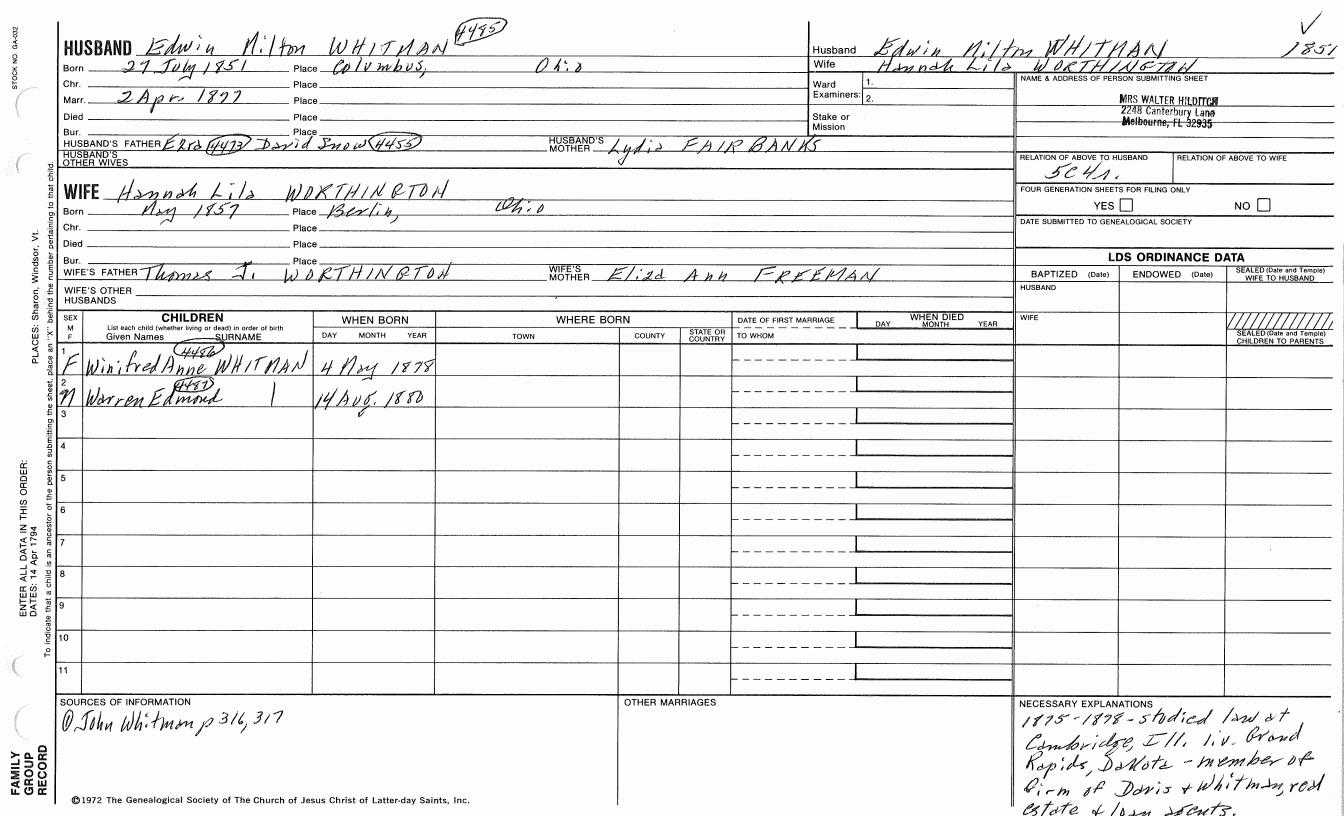 STOCK NO. GA-032
HUSBAND Edwin Milton WHITMAN 4485
Born 27 July 1851 Place Columbus, Ohio
Chr. Place
Marr. 2 Apr. 1877 Place
Died Place
Bur. Place
HUSBAND'S FATHER Ezra 4473 David Snow 4455 HUSBAND'S MOTHER Lydia FAIRBANKS
HUSBAND'S OTHER WIVES
Husband Edwin Milton WHITMAN 1851
Wife Hannah Lila WORTHINGTON
Ward Examiners: 1. 2.
Stake or Mission
NAME & ADDRESS OF PERSON SUBMITTING SHEET
MRS WALTER HILDITCH
2248 Canterbury Lane
Melbourne, FL 32935
RELATION OF ABOVE TO HUSBAND RELATION OF ABOVE TO WIFE
5C4r.
FOUR GENERATION SHEETS FOR FILING ONLY
YES NO
DATE SUBMITTED TO GENEALOGICAL SOCIETY
WIFE Hannah Lila WORTHINGTON
Born May 1857 Place Berlin, Ohio
Chr. Place
Died Place
Bur. Place
WIFE'S FATHER Thomas J. WORTHINGTON WIFE'S MOTHER Eliza Ann FREEMAN
WIFE'S OTHER HUSBANDS
LDS ORDINANCE DATA
BAPTIZED (Date) ENDOWED (Date) SEALED (Date and Temple) WIFE TO HUSBAND
HUSBAND
WIFE
SEALED (Date and Temple) CHILDREN TO PARENTS
SEX M F
CHILDREN
List each child (whether living or dead) in order of birth
Given Names SURNAME
WHEN BORN
DAY MONTH YEAR
WHERE BORN
TOWN COUNTY STATE OR COUNTRY
DATE OF FIRST MARRIAGE
TO WHOM
WHEN DIED
DAY MONTH YEAR
1 F Winifred Anne WHITMAN 4486 4 May 1878
2 M Warren Edmond 4487 | 14 Aug. 1880
3
4
5
6
7
8
9
10
11
SOURCES OF INFORMATION
① John Whitman p 316, 317
OTHER MARRIAGES
NECESSARY EXPLANATIONS
1875-1878 - studied law at
Cambridge, Ill. liv. Grand
Rapids, Dakota - member of
firm of Davis & Whitman, real
estate & loan agents.
©1972 The Genealogical Society of The Church of Jesus Christ of Latter-day Saints, Inc.
FAMILY GROUP RECORD
ENTER ALL DATA IN THIS ORDER:
DATES: 14 Apr 1794
PLACES: Sharon, Windsor, Vt.
To indicate that a child is an ancestor of the person submitting the sheet, place an "X" behind the number pertaining to that child.